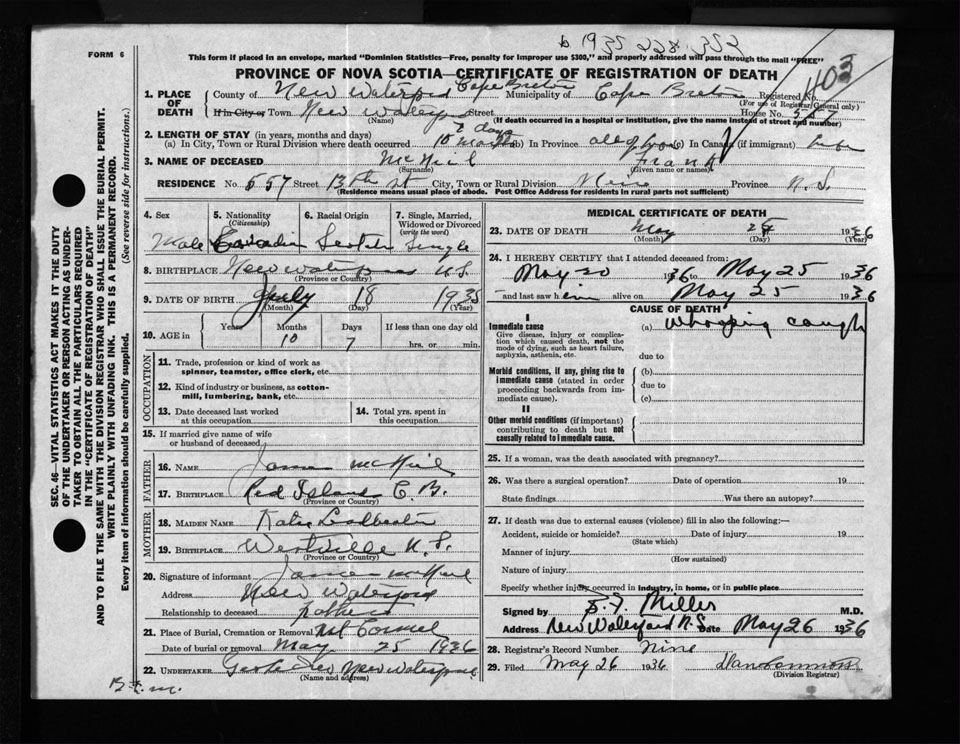 b 1935 228. 353
FORM 6
This form if placed in an envelope, marked "Dominion Statistics—Free, penalty for improper use $300," and properly addressed will pass through the mail "FREE"
PROVINCE OF NOVA SCOTIA—CERTIFICATE OF REGISTRATION OF DEATH
403
1. PLACE OF DEATH
County of New Waterford Cape Breton Municipality of Cape Breton Registered No.
(For use of Registrar General only)
If in City or Town New Waterford Street House No. 557
(Name) (If death occurred in a hospital or institution, give the name instead of street and number)
2. LENGTH OF STAY (in years, months and days)
(a) In City, Town or Rural Division where death occurred 10 months 7 days (b) In Province (c) In Canada (if immigrant) life
3. NAME OF DECEASED McNeil Frank
(Surname) (Given name or names)
RESIDENCE No. 557 Street 13th st City, Town or Rural Division Province N.S.
(Residence means usual place of abode. Post Office Address for residents in rural parts not sufficient)
4. Sex Male
5. Nationality (Citizenship) Canadian
6. Racial Origin Scotch
7. Single, Married, Widowed or Divorced (write the word) Single
8. BIRTHPLACE New Waterford N.S.
(Province or Country)
9. DATE OF BIRTH July 18 1935
(Month) (Day) (Year)
10. AGE in Years Months Days If less than one day old
10 7 hrs. or min.
OCCUPATION
11. Trade, profession or kind of work as spinner, teamster, office clerk, etc.
12. Kind of industry or business, as cotton-mill, lumbering, bank, etc.
13. Date deceased last worked at this occupation
14. Total yrs. spent in this occupation
15. If married give name of wife or husband of deceased
FATHER
16. NAME James McNeil
17. BIRTHPLACE Red Island C.B.
(Province or Country)
MOTHER
18. MAIDEN NAME Katie
19. BIRTHPLACE Westville N.S.
(Province or Country)
20. Signature of informant James McNeil
Address New Waterford
Relationship to deceased father
21. Place of Burial, Cremation or Removal Mt Carmel
Date of burial or removal May 25 1936
22. UNDERTAKER New Waterford
(Name and address)
B.F.M.
MEDICAL CERTIFICATE OF DEATH
23. DATE OF DEATH May 25 1936
(Month) (Day) (Year)
24. I HEREBY CERTIFY that I attended deceased from:
May 20 1936 to May 25 1936
and last saw h im alive on May 25 1936
CAUSE OF DEATH
I
Immediate cause
Give disease, injury or complication which caused death, not the mode of dying, such as heart failure, asphyxia, asthenia, etc.
(a) Whooping cough
due to
Morbid conditions, if any, giving rise to immediate cause (stated in order proceeding backwards from immediate cause).
(b)
due to
(c)
II
Other morbid conditions (if important) contributing to death but not causally related to immediate cause.
25. If a woman, was the death associated with pregnancy?
26. Was there a surgical operation? Date of operation 19
State findings Was there an autopsy?
27. If death was due to external causes (violence) fill in also the following:—
Accident, suicide or homicide? Date of injury 19
(State which)
Manner of injury
(How sustained)
Nature of injury
Specify whether injury occurred in industry, in home, or in public place
Signed by Miller M.D.
Address New Waterford N.S. Date May 26 1936
28. Registrar's Record Number Nine
29. Filed May 26 1936
(Division Registrar)
SEC. 46—VITAL STATISTICS ACT MAKES IT THE DUTY
OF THE UNDERTAKER OR PERSON ACTING AS UNDER-
TAKER TO OBTAIN ALL THE PARTICULARS REQUIRED
IN THE "CERTIFICATE OF REGISTRATION OF DEATH"
AND TO FILE THE SAME WITH THE DIVISION REGISTRAR WHO SHALL ISSUE THE BURIAL PERMIT.
WRITE PLAINLY WITH UNFADING INK. THIS IS A PERMANENT RECORD.
Every item of information should be carefully supplied. (See reverse side for instructions.)